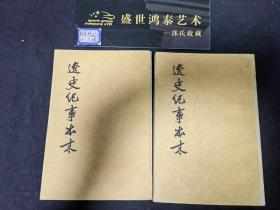 盛世鸿泰艺术
郭氏收藏
辽史纪事本末
辽史纪事本末